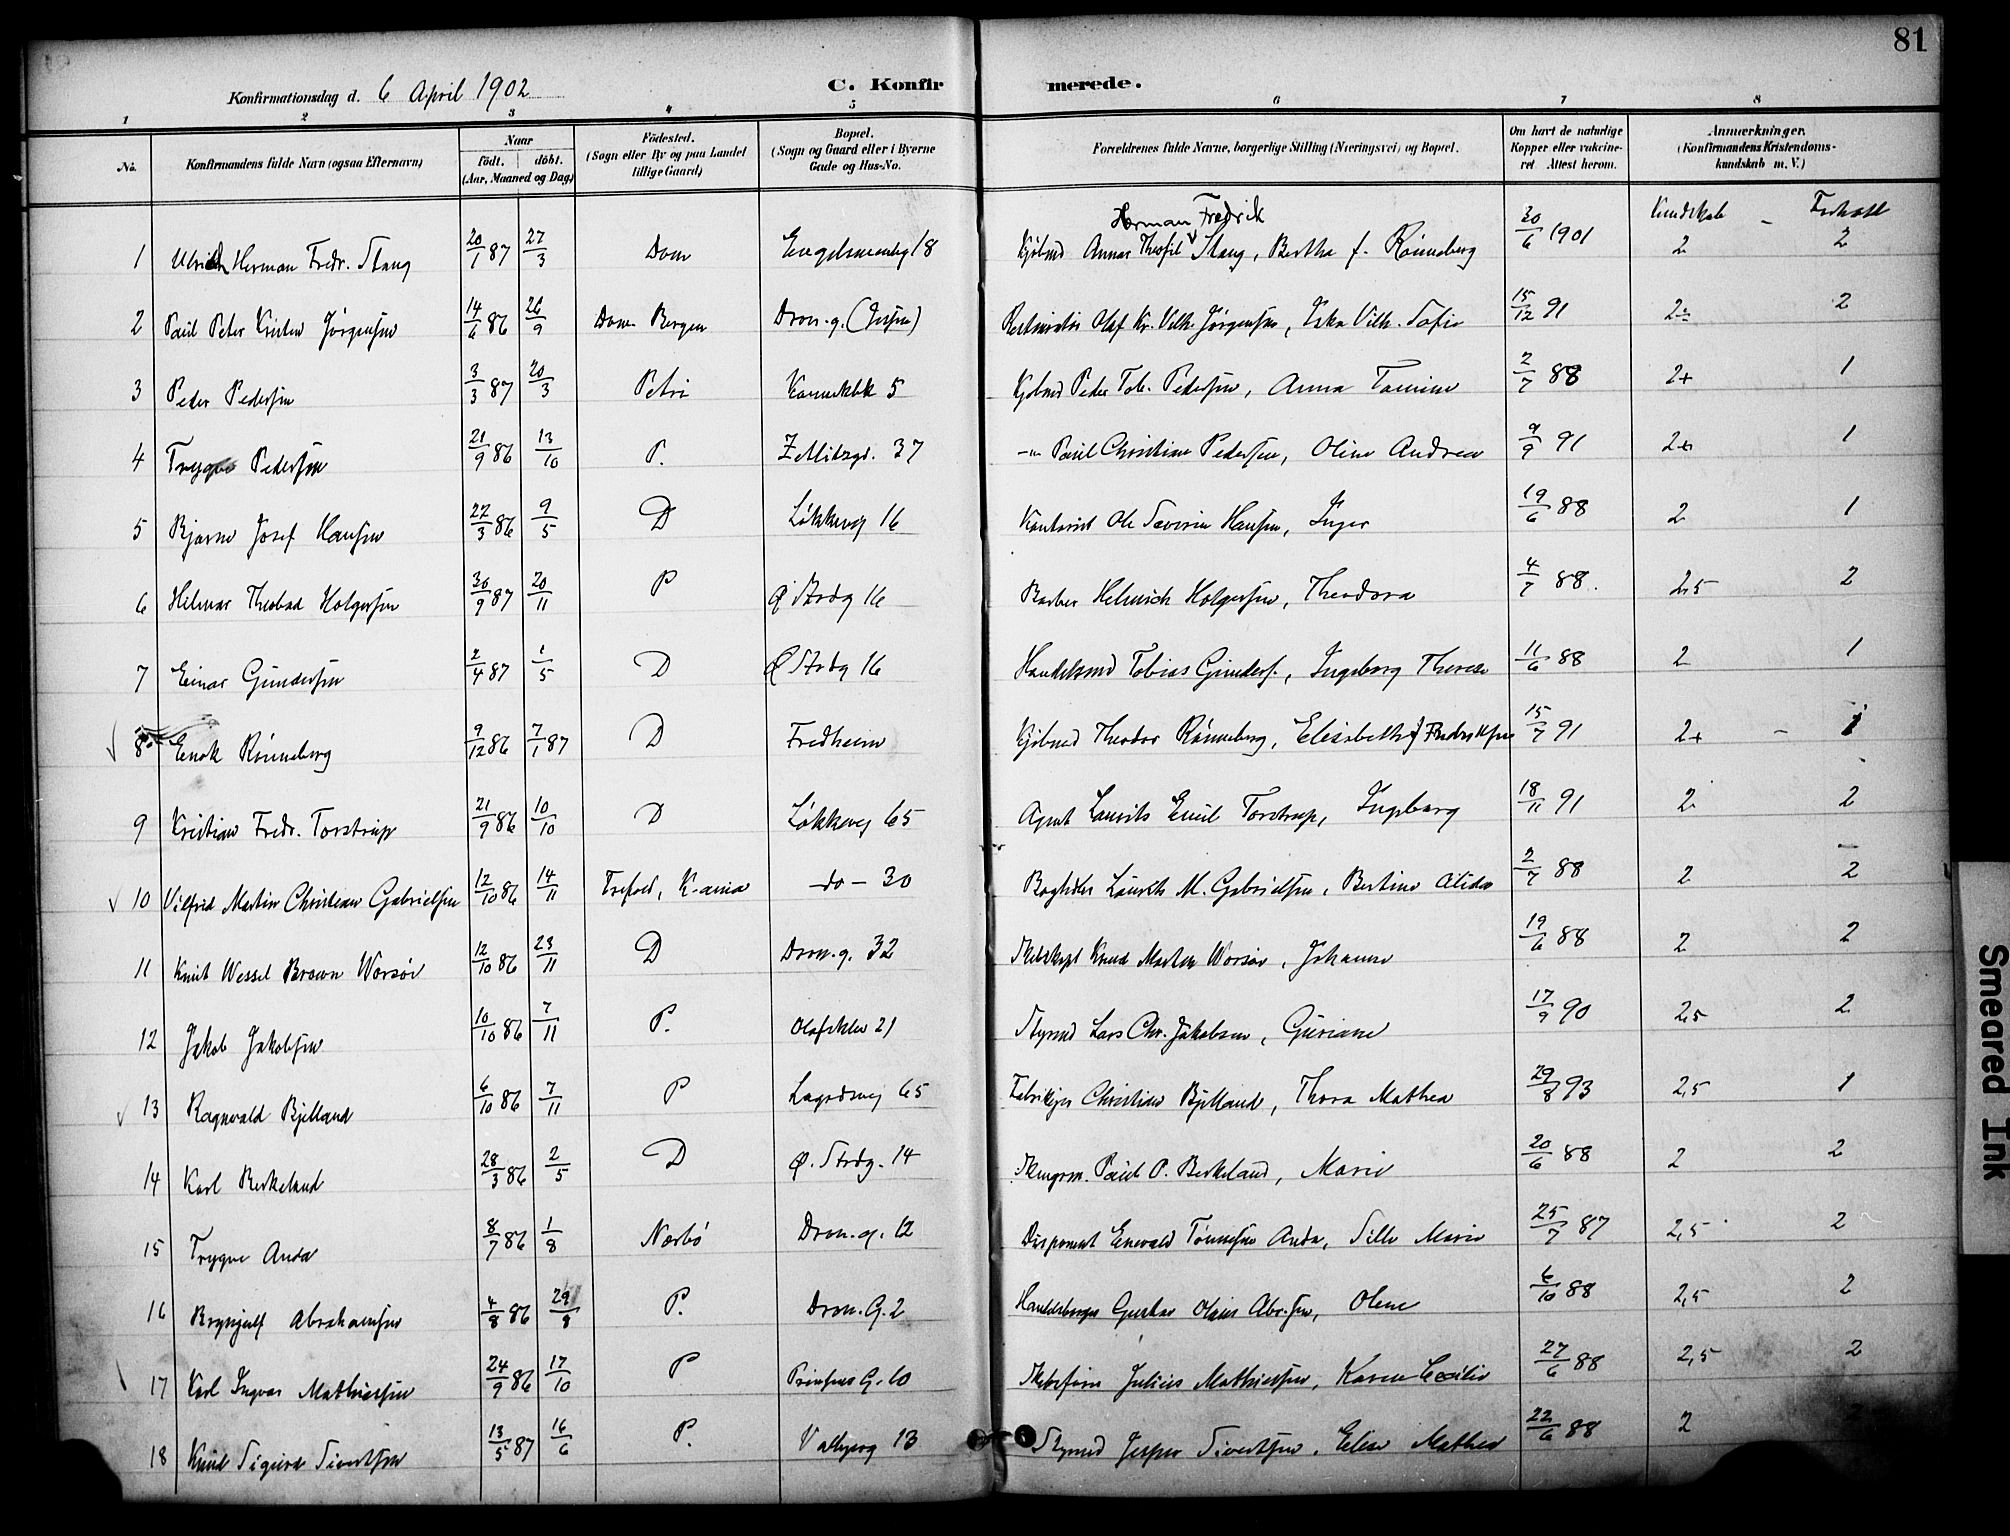 81
Konfirmationsdag d. 6 April 1902
C. Konfirmerede.
1 2 3 4 5 6 7 8
No.
Konfirmandens fulde Navn (ogsaa Efternavn)
Naar
födt. döbt.
(Aar, Maaned og Dag)
Födested.
(Sogn eller By og paa Landet
tillige Gaard)
Bopæl.
(Sogn og Gaard eller i Byerne
Gade og Hus-No.
Forældrenes fulde Navne, borgerlige Stilling (Næringsvei) og Bopæl.
Om havt de naturlige
Kopper eller vakcine-
ret. Attest herom.
Anmærkninger.
(Konfirmandens Kristendoms-
kundskab m. V.)
Kundskab -
Herman Fredrik
1 Ulrich Herman Fredr. Stang 20/1 87 27/3 Dom 18 Kjøbmd Annar Theofil Stang, Bertha f. Rönneberg 30/6 1901 2 2
2 Paul Peter Kristen Jörgensen 14/6 86 26/9 Dom Bergen Dron.g. Olaf Kr. Vilh. Jörgensen, Vilh. Sofie 15/12 91 2 2
3 Peder Pedersen 3/3 87 20/3 Petri 5 Kjøbmd Peder Tob. Pedersen, Anna Tomine 2/7 88 2+ 1
4 Trygve Pedersen 21/9 86 13/10 P. Zetlitzgd. 37 -"- Paul Christian Pedersen, Oline Andrea 9/9 91 2+ 1
5 Bjarne Josef Hansen 22/3 86 9/5 D Løkkevej 16 Kontorist Ole Severin Hansen, Inger 19/6 88 2 1
6 Hilmar Theobad Holgersen 30/9 87 20/11 P Ø Strdg 16 Barber Helmich Holgersen, Theodora 4/7 88. 2,5 2
7 Einar Gundersen 2/4 87 1/5 D Ø Strdg 16 Handelsmd Tobias Gunders., Ingeborg Therese 11/6 88 2 1
8 Enok Rönneberg 9/12 86 7/1 87 D Fredheim Kjöbmd Theodor Rönneberg, Elisabeth f Fredriksen 15/7 91 2+ - 1
9 Kristian Fredr. Torstrup 21/9 86 10/10 D Løkkevej 65 Agent Laurits Emil Torstrup, Ingeborg 18/11 91 2 2
10 Vilfrid Martin Christian Gabrielsen 12/10 86 14/11 Trefold, K-ania -do- 30 Boghdler Laurits M. Gabrielsen, Bertine Alida 2/7 88 2 2
11 Knut Wessel Brown Worsöe 12/10 86 23/11 D Dron.g. 32 Knud Morten Worsöe, Johanne 19/6 88 2 2
12 Jakob Jakobsen 10/10 86 7/11 P. Olafsklev 21 Styrmd Lars Chr. Jakobsen, Guriane 17/9 90 2,5 2
13 Ragnvald Bjelland 6/10 86 7/11 P Lagårdsvej 65 Fabrikejer Christian Bjelland, Thora Mathea 29/8 93 2,5 1
14 Karl Berkeland 28/3 86 2/5 D Ø. Strdg. 14 Paul P. Berkeland, Marie 20/6 88 2 2
15 Trygve Anda 8/7 86 1/8 Nærbö Dron.g. 12 Disponent Enevald Tönnesen Anda, Sille Marie 25/7 87 2,5 2
16 Brynjulf Abrahamsen 4/8 86 29/8 P. Dron.G. 2 Handelsborger Gustav Olaus Abr.sen, Olene 6/10 88 2,5 2
17 Karl Ingvar Mathiesen 24/9 86 17/10 P Prinsens G. 10 Skibsfører Julius Mathiesen, Karen Cecilie 27/6 88 2,5 2
18 Knud Sigurd Sivertsen 13/5 87 16/6 P. Valbjerg 13 Styrmd Jesper Sivertsen, Elise Mathea 22/6 88 2 2
Smeared Ink